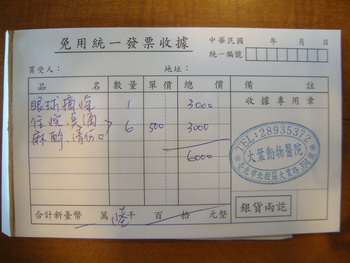 免用統一發票收據
中華民國 年 月 日
統一編號
買受人： 地址：
品名 數量 單價 總價 備註
眼球摘除 1 3000
收據專用章
住院 點滴 6 500 3000
麻醉 清創。
6000
TEL:28935372
大葉動物醫院
銀貨兩訖
合計新臺幣 萬 陸 千 百 拾 元整